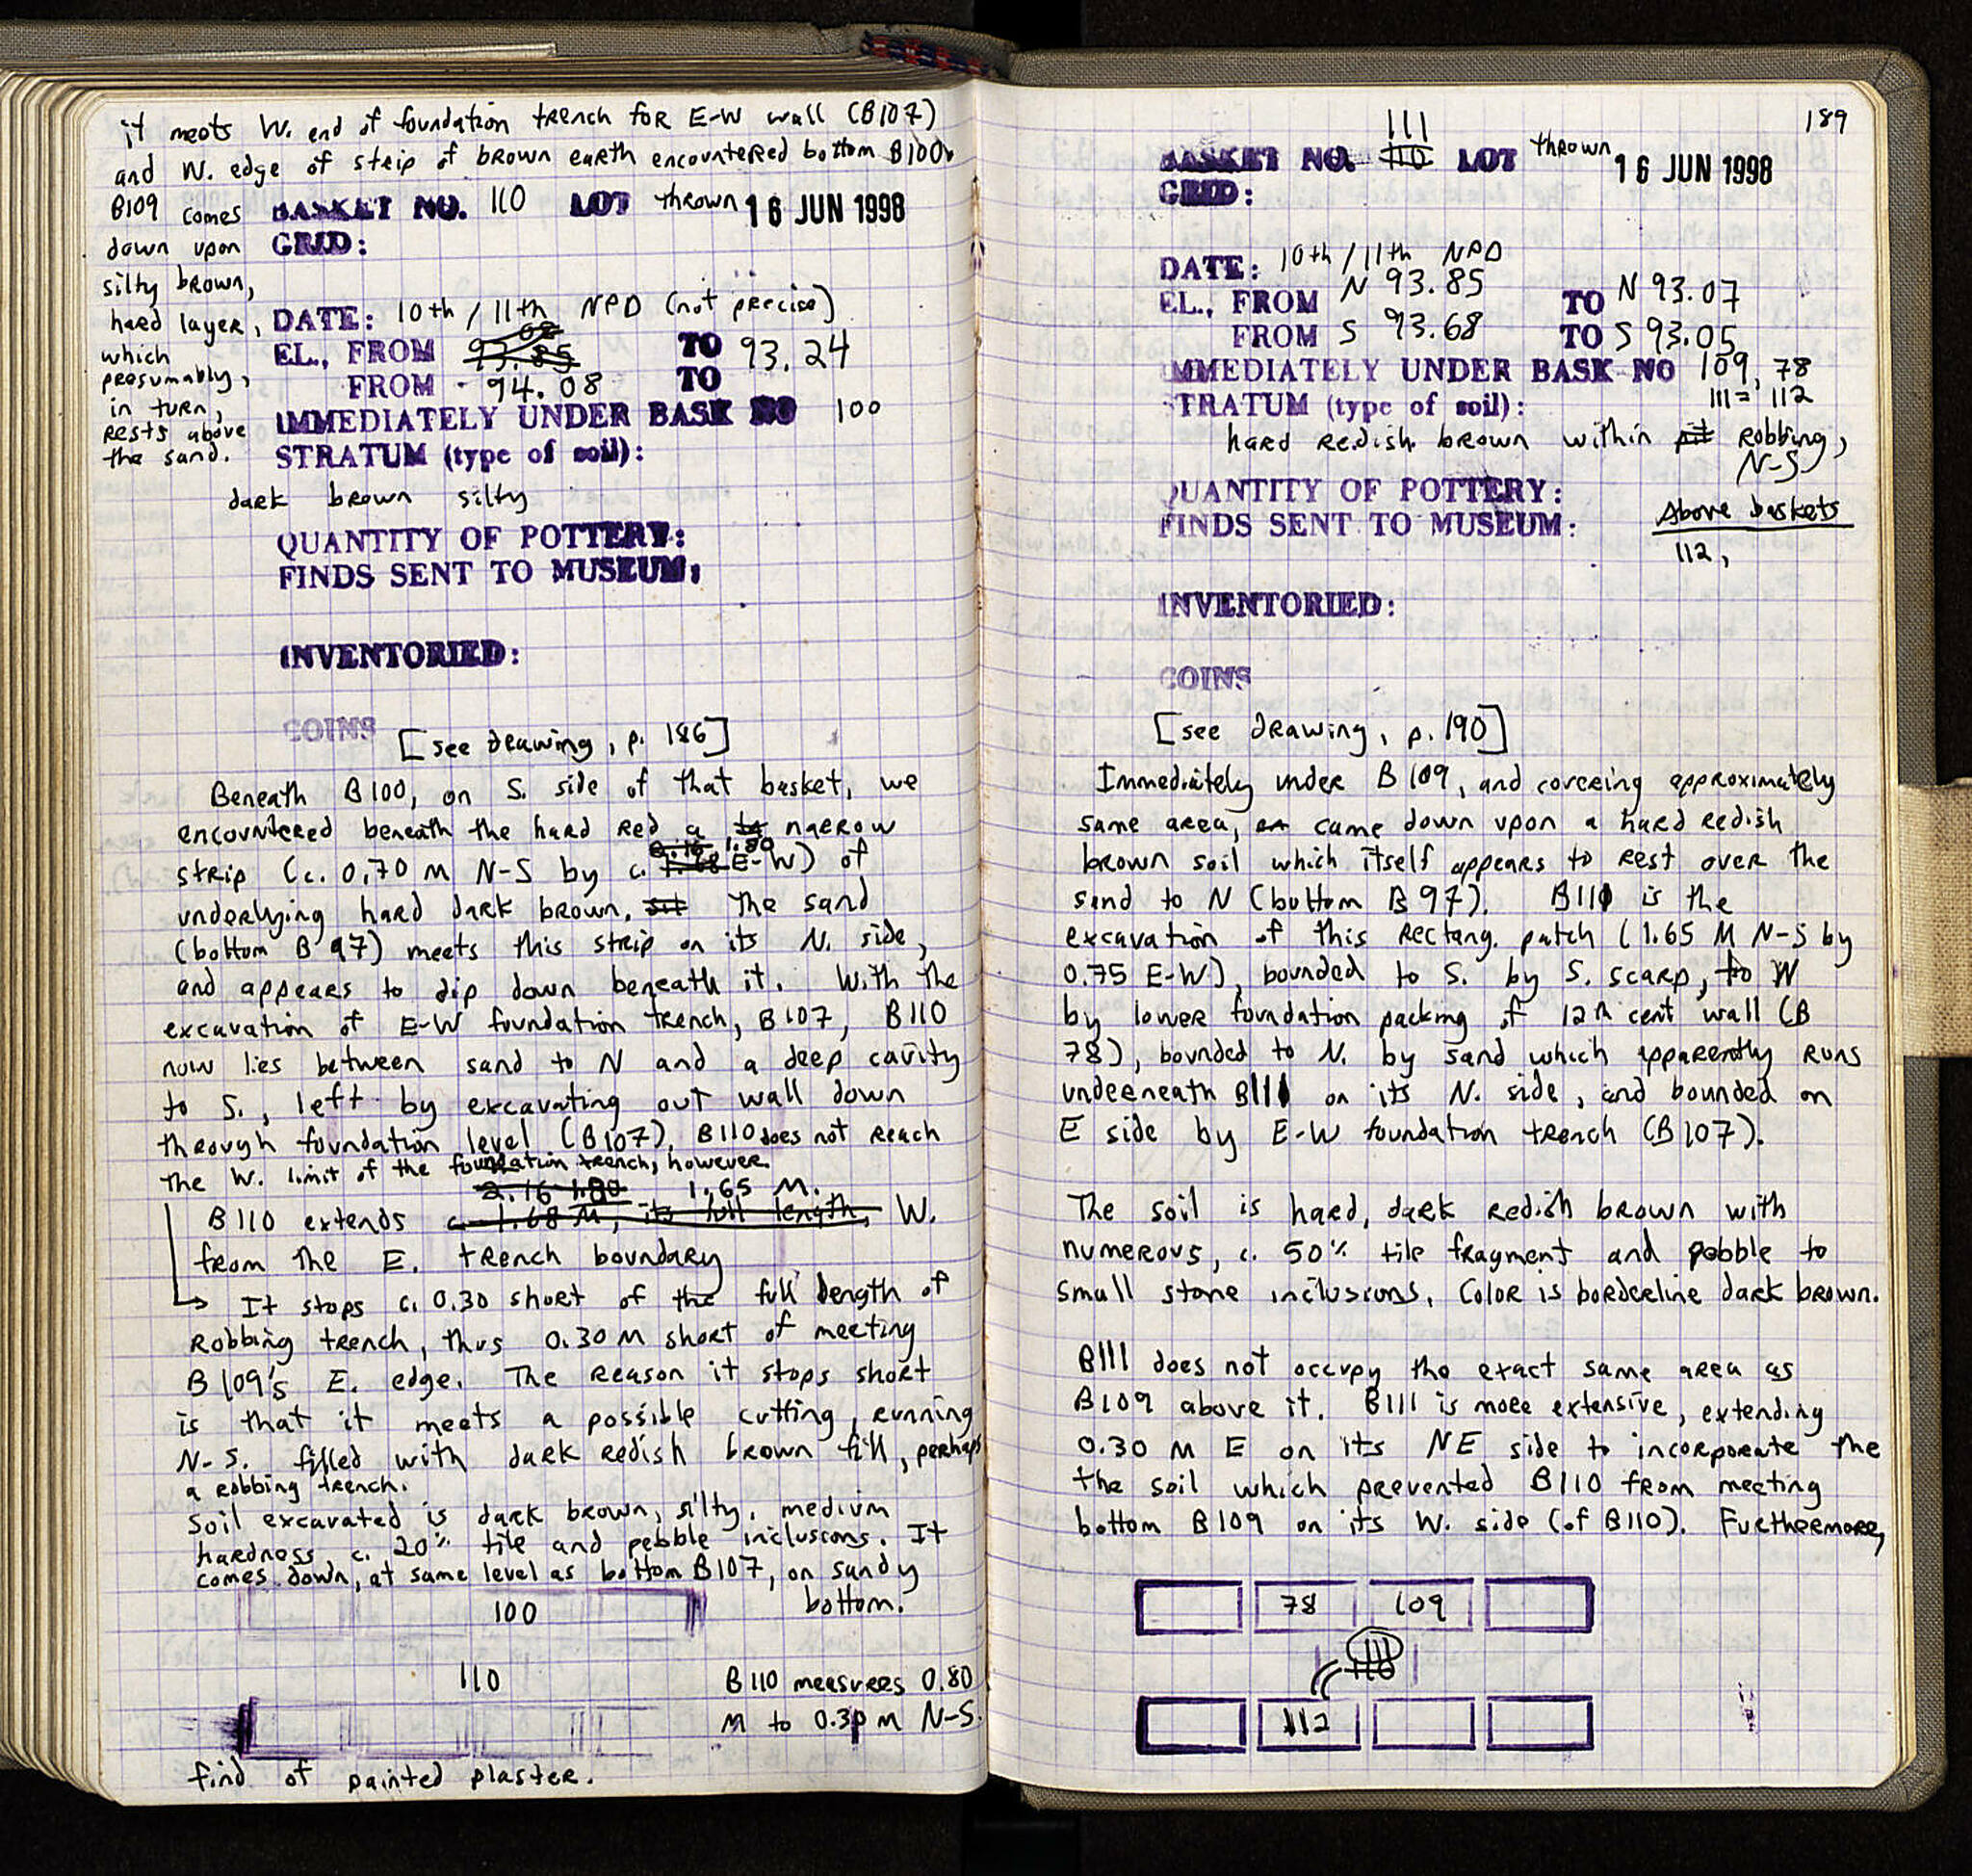 it meets W. end of foundation trench for E-W wall (B107)
and W. edge of strip of brown earth encountered bottom B100.
B109 comes
down upon
silty brown,
hard layer,
which
presumably,
in turn,
rests above
the sand.
BASKET NO. 110 LOT thrown 16 JUN 1998
GRID:
DATE: 10th / 11th NPD (not precise)
EL., FROM 93.85 TO 93.24
FROM - 94.08 TO
IMMEDIATELY UNDER BASK NO 100
STRATUM (type of soil):
dark brown silty
QUANTITY OF POTTERY:
FINDS SENT TO MUSEUM:
INVENTORIED:
COINS
[see drawing, p. 186]
Beneath B100, on S. side of that basket, we
encountered beneath the hard red a narrow
strip (c. 0.70 M N-S by c. 1.80 E-W) of
underlying hard dark brown. The sand
(bottom B 97) meets this strip on its N. side,
and appears to dip down beneath it. With the
excavation of E-W foundation trench, B107, B110
now lies between sand to N and a deep cavity
to S., left by excavating out wall down
through foundation level (B107). B110 does not reach
the W. limit of the foundation trench, however.
2.16 1.80 1.65 M.
B110 extends c. 1.68 M, its full length, W.
from the E. trench boundary
It stops c. 0.30 short of the full length of
Robbing trench, thus 0.30 M short of meeting
B109's E. edge. The reason it stops short
is that it meets a possible cutting, running
N-S. filled with dark redish brown fill, perhaps
a robbing trench.
Soil excavated is dark brown, silty, medium
hardness, c. 20% tile and pebble inclusions. It
comes down, at same level as bottom B107, on sandy
bottom.
100
110
B110 measures 0.80
M to 0.30 M N-S.
find of painted plaster.
189
111
BASKET NO. 110 LOT thrown 16 JUN 1998
GRID:
DATE: 10th / 11th NPD
EL., FROM N 93.85 TO N 93.07
FROM S 93.68 TO S 93.05
IMMEDIATELY UNDER BASK NO 109, 78
111 = 112
STRATUM (type of soil):
hard redish brown within pit Robbing,
N-S
QUANTITY OF POTTERY:
FINDS SENT TO MUSEUM:
Above baskets
112,
INVENTORIED:
COINS
[see drawing, p. 190]
Immediately under B109, and covering approximately
same area, came down upon a hard redish
brown soil which itself appears to rest over the
sand to N (bottom B 97). B111 is the
excavation of this rectang. patch (1.65 M N-S by
0.75 E-W), bounded to S. by S. scarp, to W
by lower foundation packing of 12th cent wall (B
78), bounded to N. by sand which apparently runs
underneath B111 on its N. side, and bounded on
E side by E-W foundation trench (B107).
The soil is hard, dark redish brown with
numerous, c. 50% tile fragment and pebble to
small stone inclusions. Color is borderline dark brown.
B111 does not occupy the exact same area as
B109 above it. B111 is more extensive, extending
0.30 M E on its NE side to incorporate the
the soil which prevented B110 from meeting
bottom B109 on its W. side (of B110). Furthermore,
78 109
111
110
112